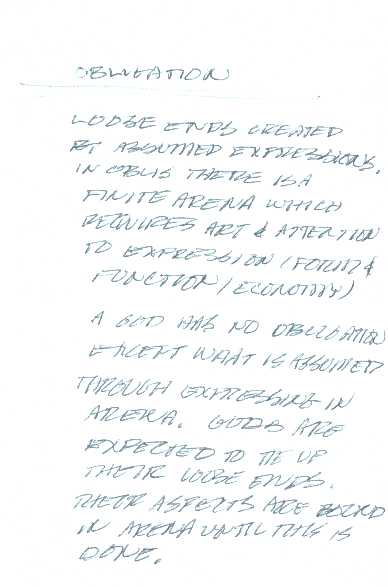 OBLIGATION
LOOSE ENDS CREATED
BY ASSUMED EXPRESSIONS.
IN ORBIS THERE IS A
FINITE ARENA WHICH
REQUIRES ART & ATTENTION
TO EXPRESSION (FORM &
FUNCTION / ECONOMY)
A GOD HAS NO OBLIGATION
EXCEPT WHAT IS ASSUMED
THROUGH EXPRESSING IN
ARENA. GODS ARE
EXPECTED TO TIE UP
THEIR LOOSE ENDS.
THEIR ASPECTS ARE BOUND
IN ARENA UNTIL THIS IS
DONE.